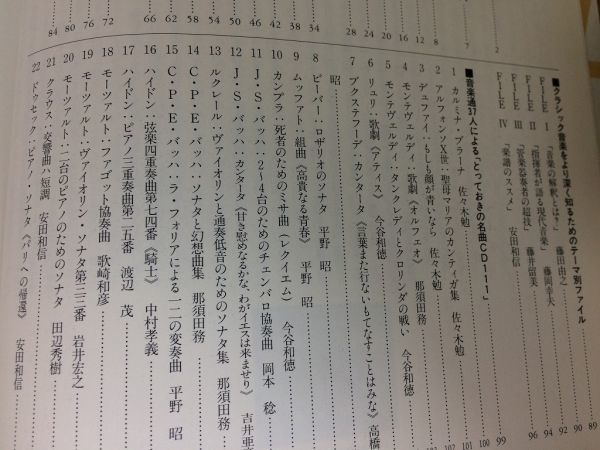 ■クラシック音楽をより深く知るためのテーマ別ファイル
FILE Ⅰ 「音楽の解釈とは?」 藤田由之 89
FILE Ⅱ 「指揮者が語る現代音楽」 藤岡幸夫 90
FILE Ⅲ 「管楽器奏者の超技」 藤井留美 92
FILE Ⅳ 「楽譜のススメ」 安田和信 94
96
■音楽通37人による「とっておきの名曲CD111」 99
1 カルミナ・ブラーナ 佐々木勉 100
2 アルフォンソⅩ世:聖母マリアのカンティガ集 佐々木勉 100
3 デュファイ:もしも顔が青いなら 佐々木勉 101
4 モンテヴェルディ:歌劇《オルフェオ》 那須田務
5 モンテヴェルディ:タンクレディとクロリンダの戦い 今谷和徳
6 リュリ:歌劇《アティス》 今谷和徳
7 ブクステフーデ:カンタータ《言葉また行ないもてなすことはみな》 高橋昭
8 ビーバー:ロザリオのソナタ 平野 昭
9 ムッファト:組曲《高貴なる青春》 平野 昭
10 カンプラ:死者のためのミサ曲(レクイエム) 今谷和徳
11 J・S・バッハ:2〜4台のためのチェンバロ協奏曲 岡本 稔
12 J・S・バッハ:カンタータ《甘き慰めなるかな、わがイエスは来ませり》 吉井亜
13 ルクレール:ヴァイオリンと通奏低音のためのソナタ集 那須田務
14 C・P・E・バッハ:ソナタと幻想曲集 那須田務
15 C・P・E・バッハ:ラ・フォリアによる一二の変奏曲 平野 昭
16 ハイドン:弦楽四重奏曲第七四番《騎士》 中村孝義
17 ハイドン:ピアノ三重奏曲第二五番 渡辺 茂
18 モーツァルト:ファゴット協奏曲 歌崎和彦
19 モーツァルト:ヴァイオリン・ソナタ第三三番 岩井宏之
20 モーツァルト:二台のピアノのためのソナタ 田辺秀樹
21 クラウス:交響曲ハ短調 安田和信
22 ドゥセック:ピアノ・ソナタ《パリへの帰還》 安田和信
2
7
8
12
16
20
24
28
34
38
42
46
48
52
56
58
62
66
72
76
80
84